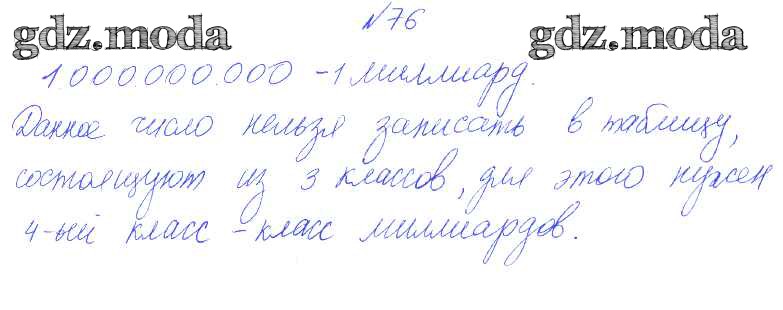 №76
gdz.moda gdz.moda
1.000.000.000 - 1 миллиард.
Данное число нельзя записать в таблицу,
состоящуют из 3 классов, для этого нужен
4-ый класс - класс миллиардов.